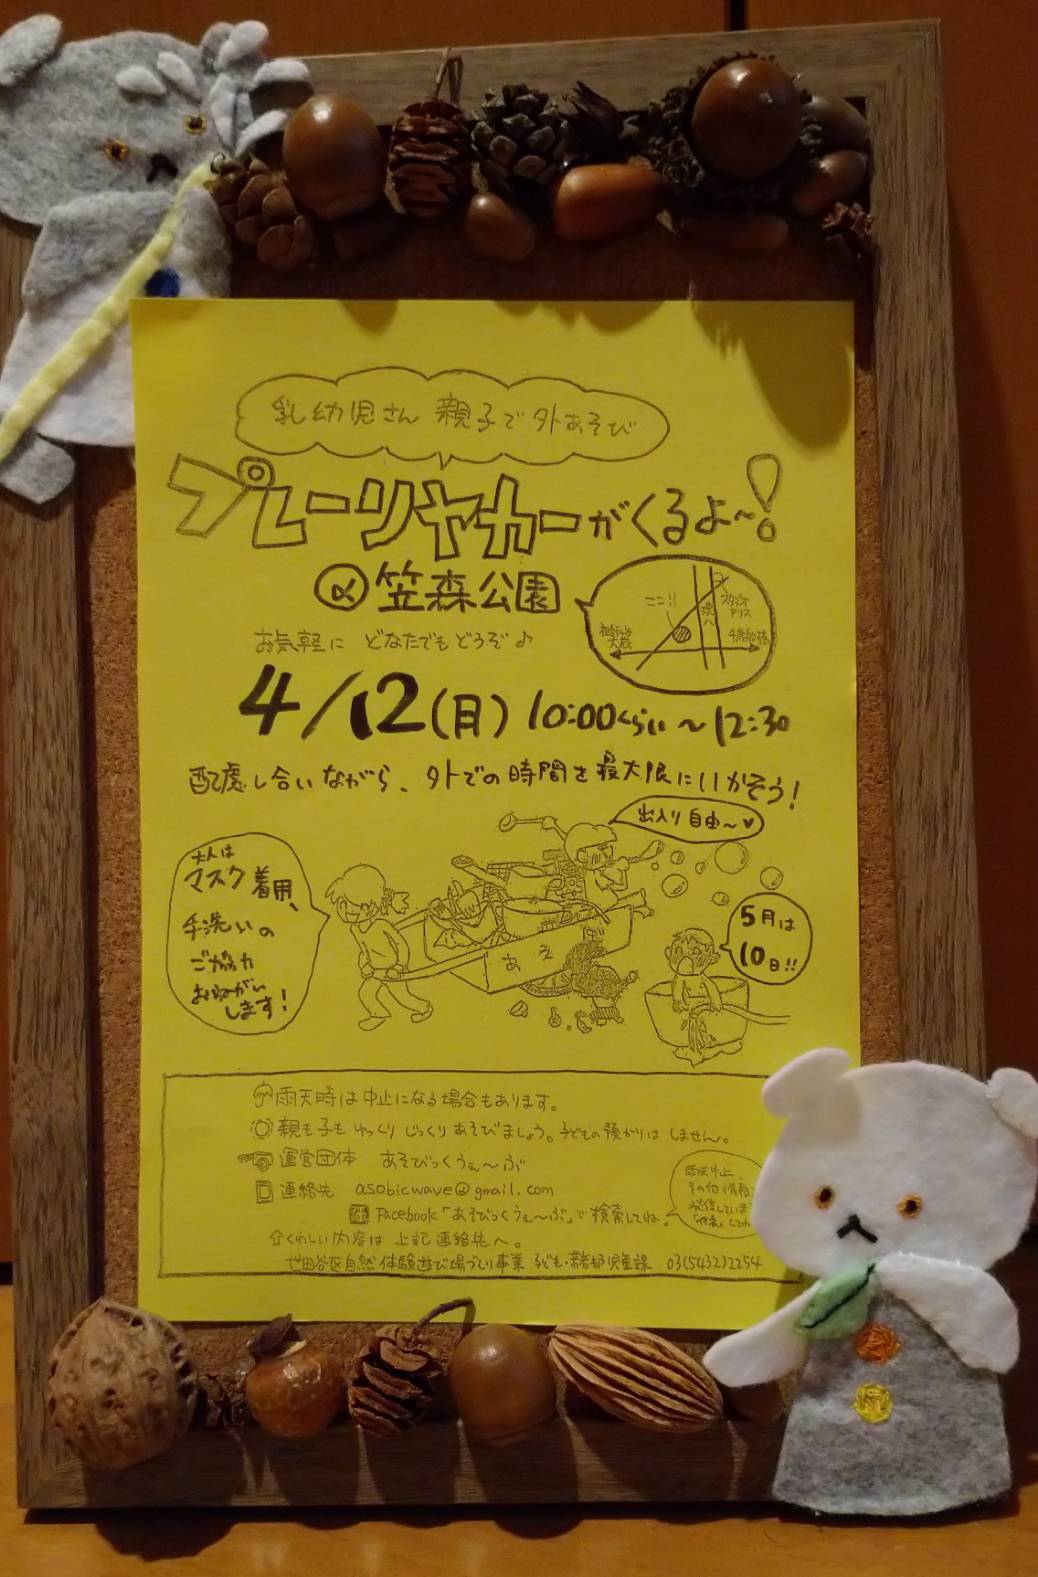 乳幼児さん 親子で外あそび
プレーリヤカーがくるよ〜!
@笠森公園
ここ!!
環八
スタジオアリス
お気軽に どなたでもどうぞ♪
4/12(月) 10:00くらい〜12:30
配慮し合いながら、外での時間を最大限にいかそう!
出入り自由〜♥
大人は
マスク着用、
手洗いの
ご協力
おねがい
します!
5月は
10日!!
あそ
雨天時は中止になる場合もあります。
親も子もゆっくりじっくりあそびましょう。子どもの預かりはしません。
運営団体 あそびっくうぇ〜ぶ
連絡先 asobicwave@gmail.com
Facebook「あそびっくうぇ〜ぶ」で検索してね。
雨天中止、
その他情報
発信していま
くわしい内容は上記連絡先へ。
世田谷区自然体験遊び場づくり事業 子ども・若者部児童課 03(5432)2254